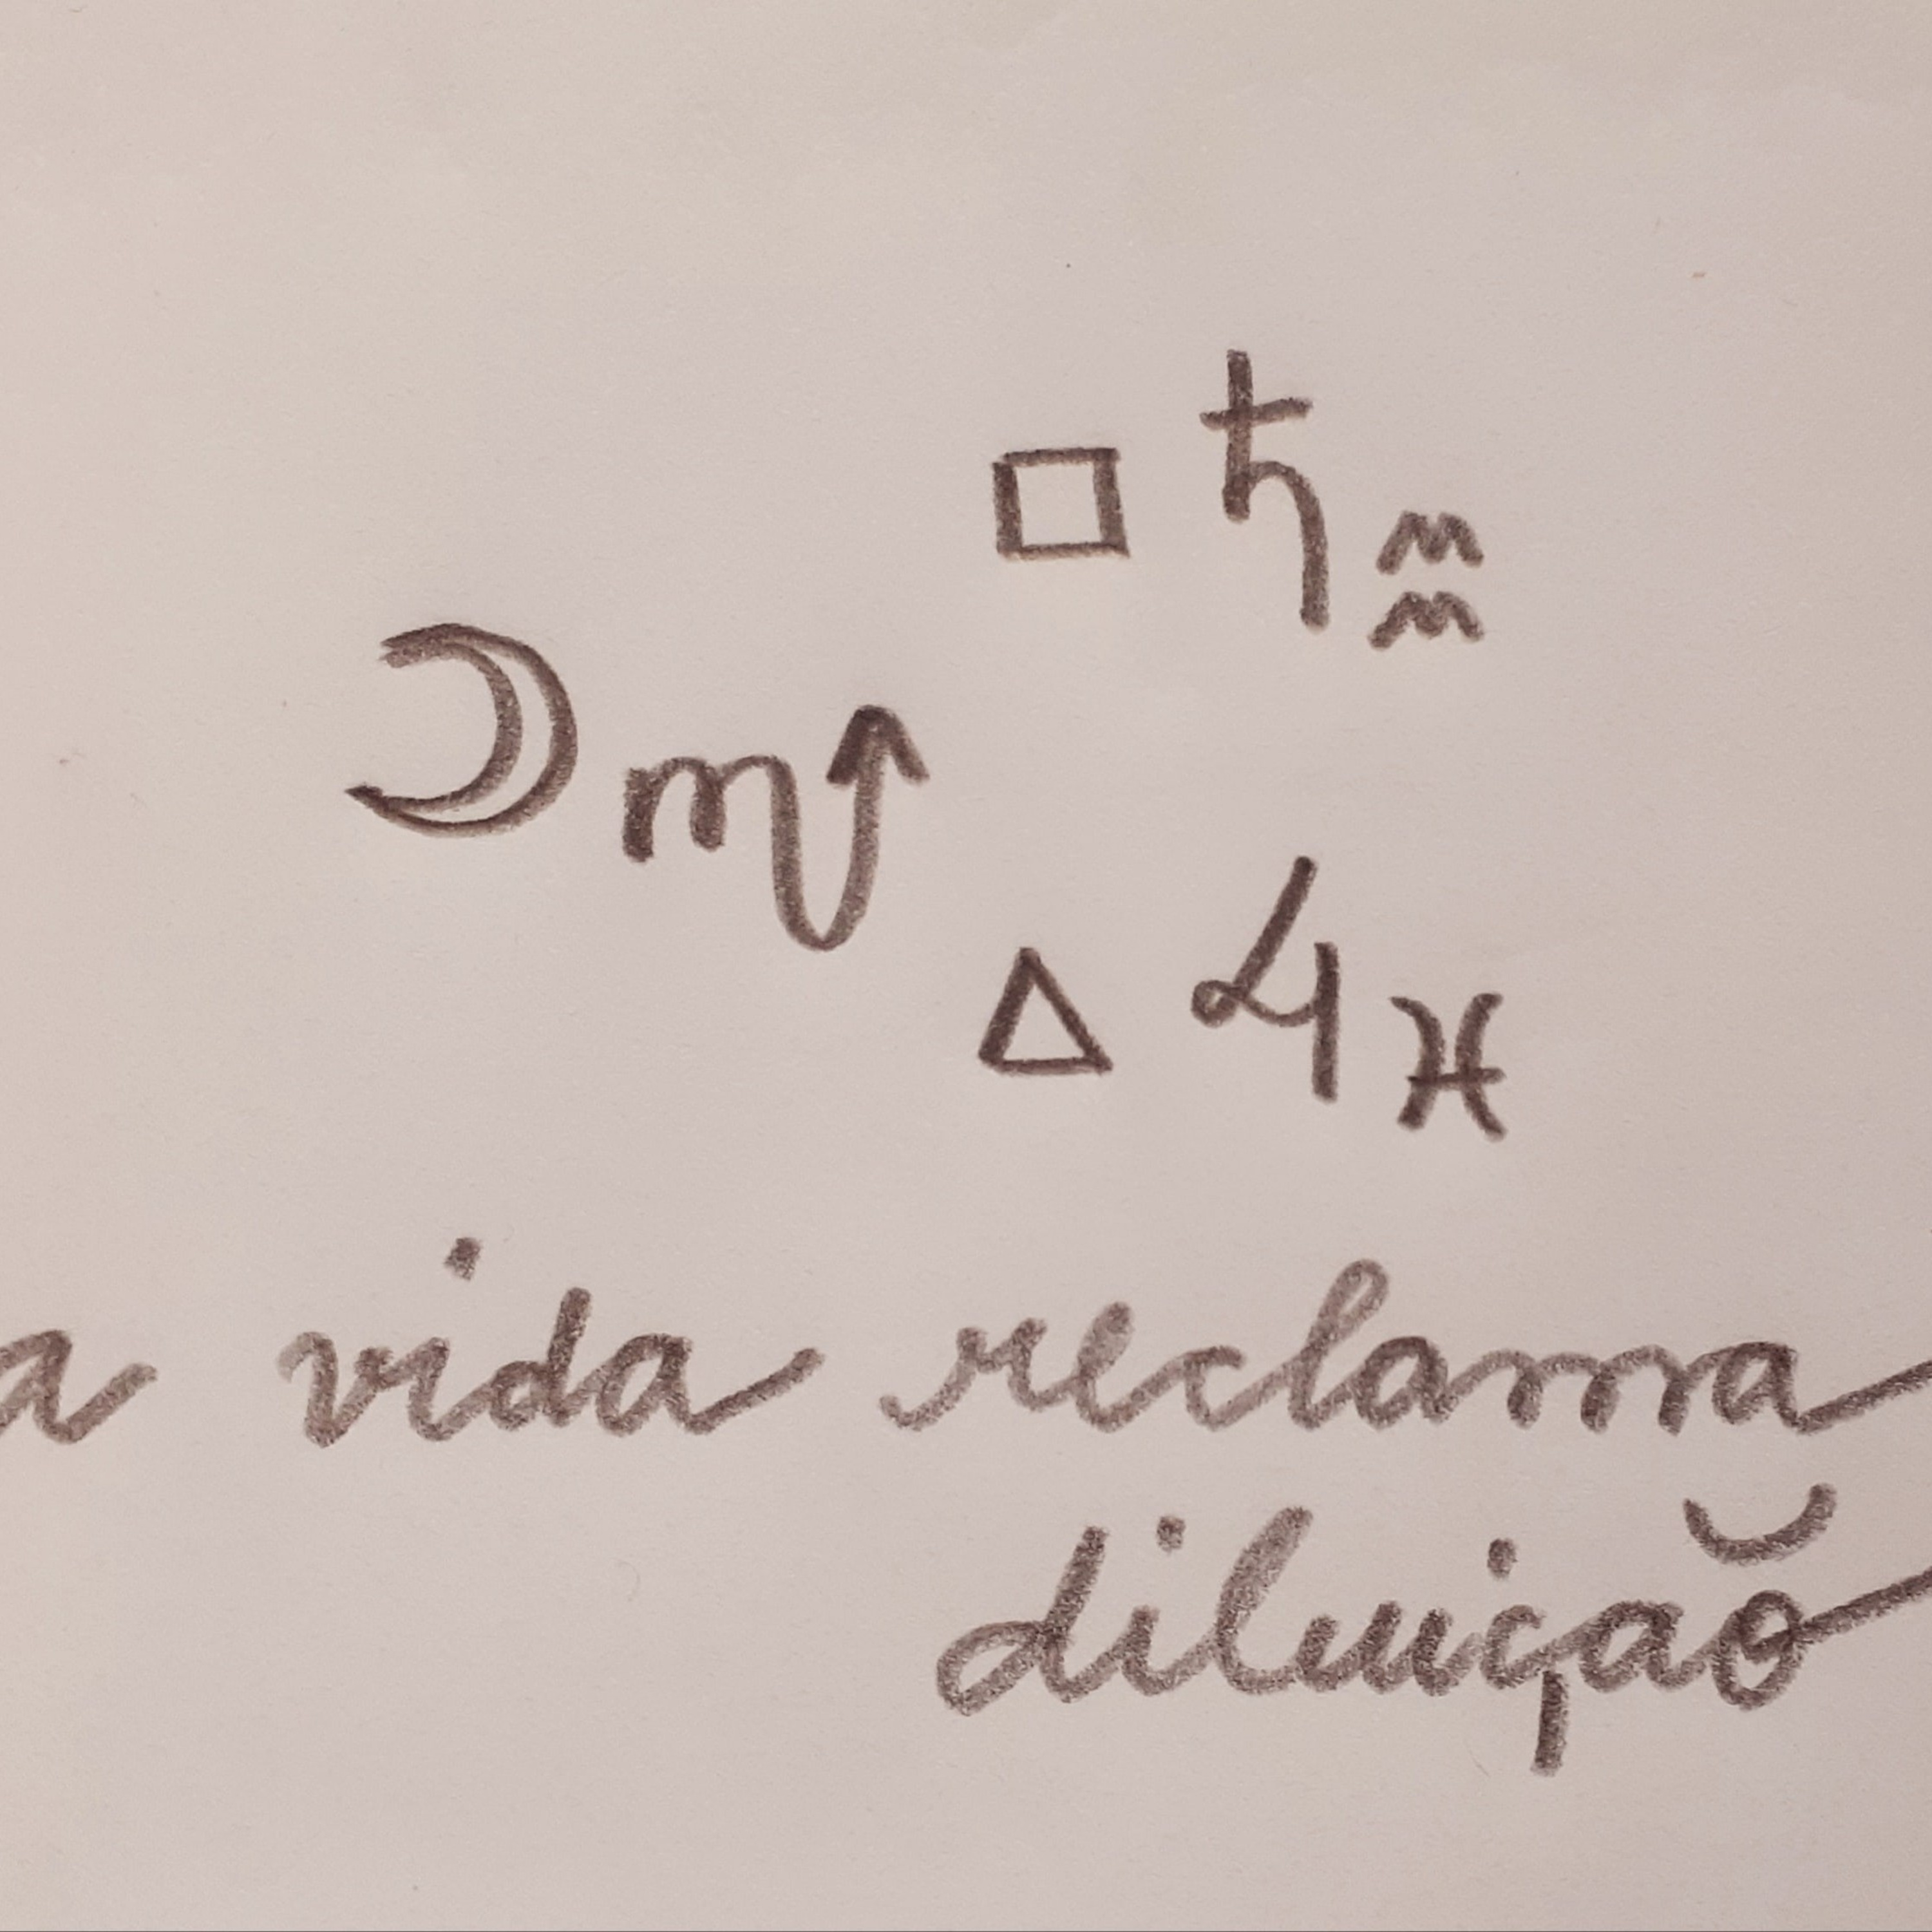 □ ♄ ♒
☽ ♏
△ ♃ ♓
a vida reclama
diluição